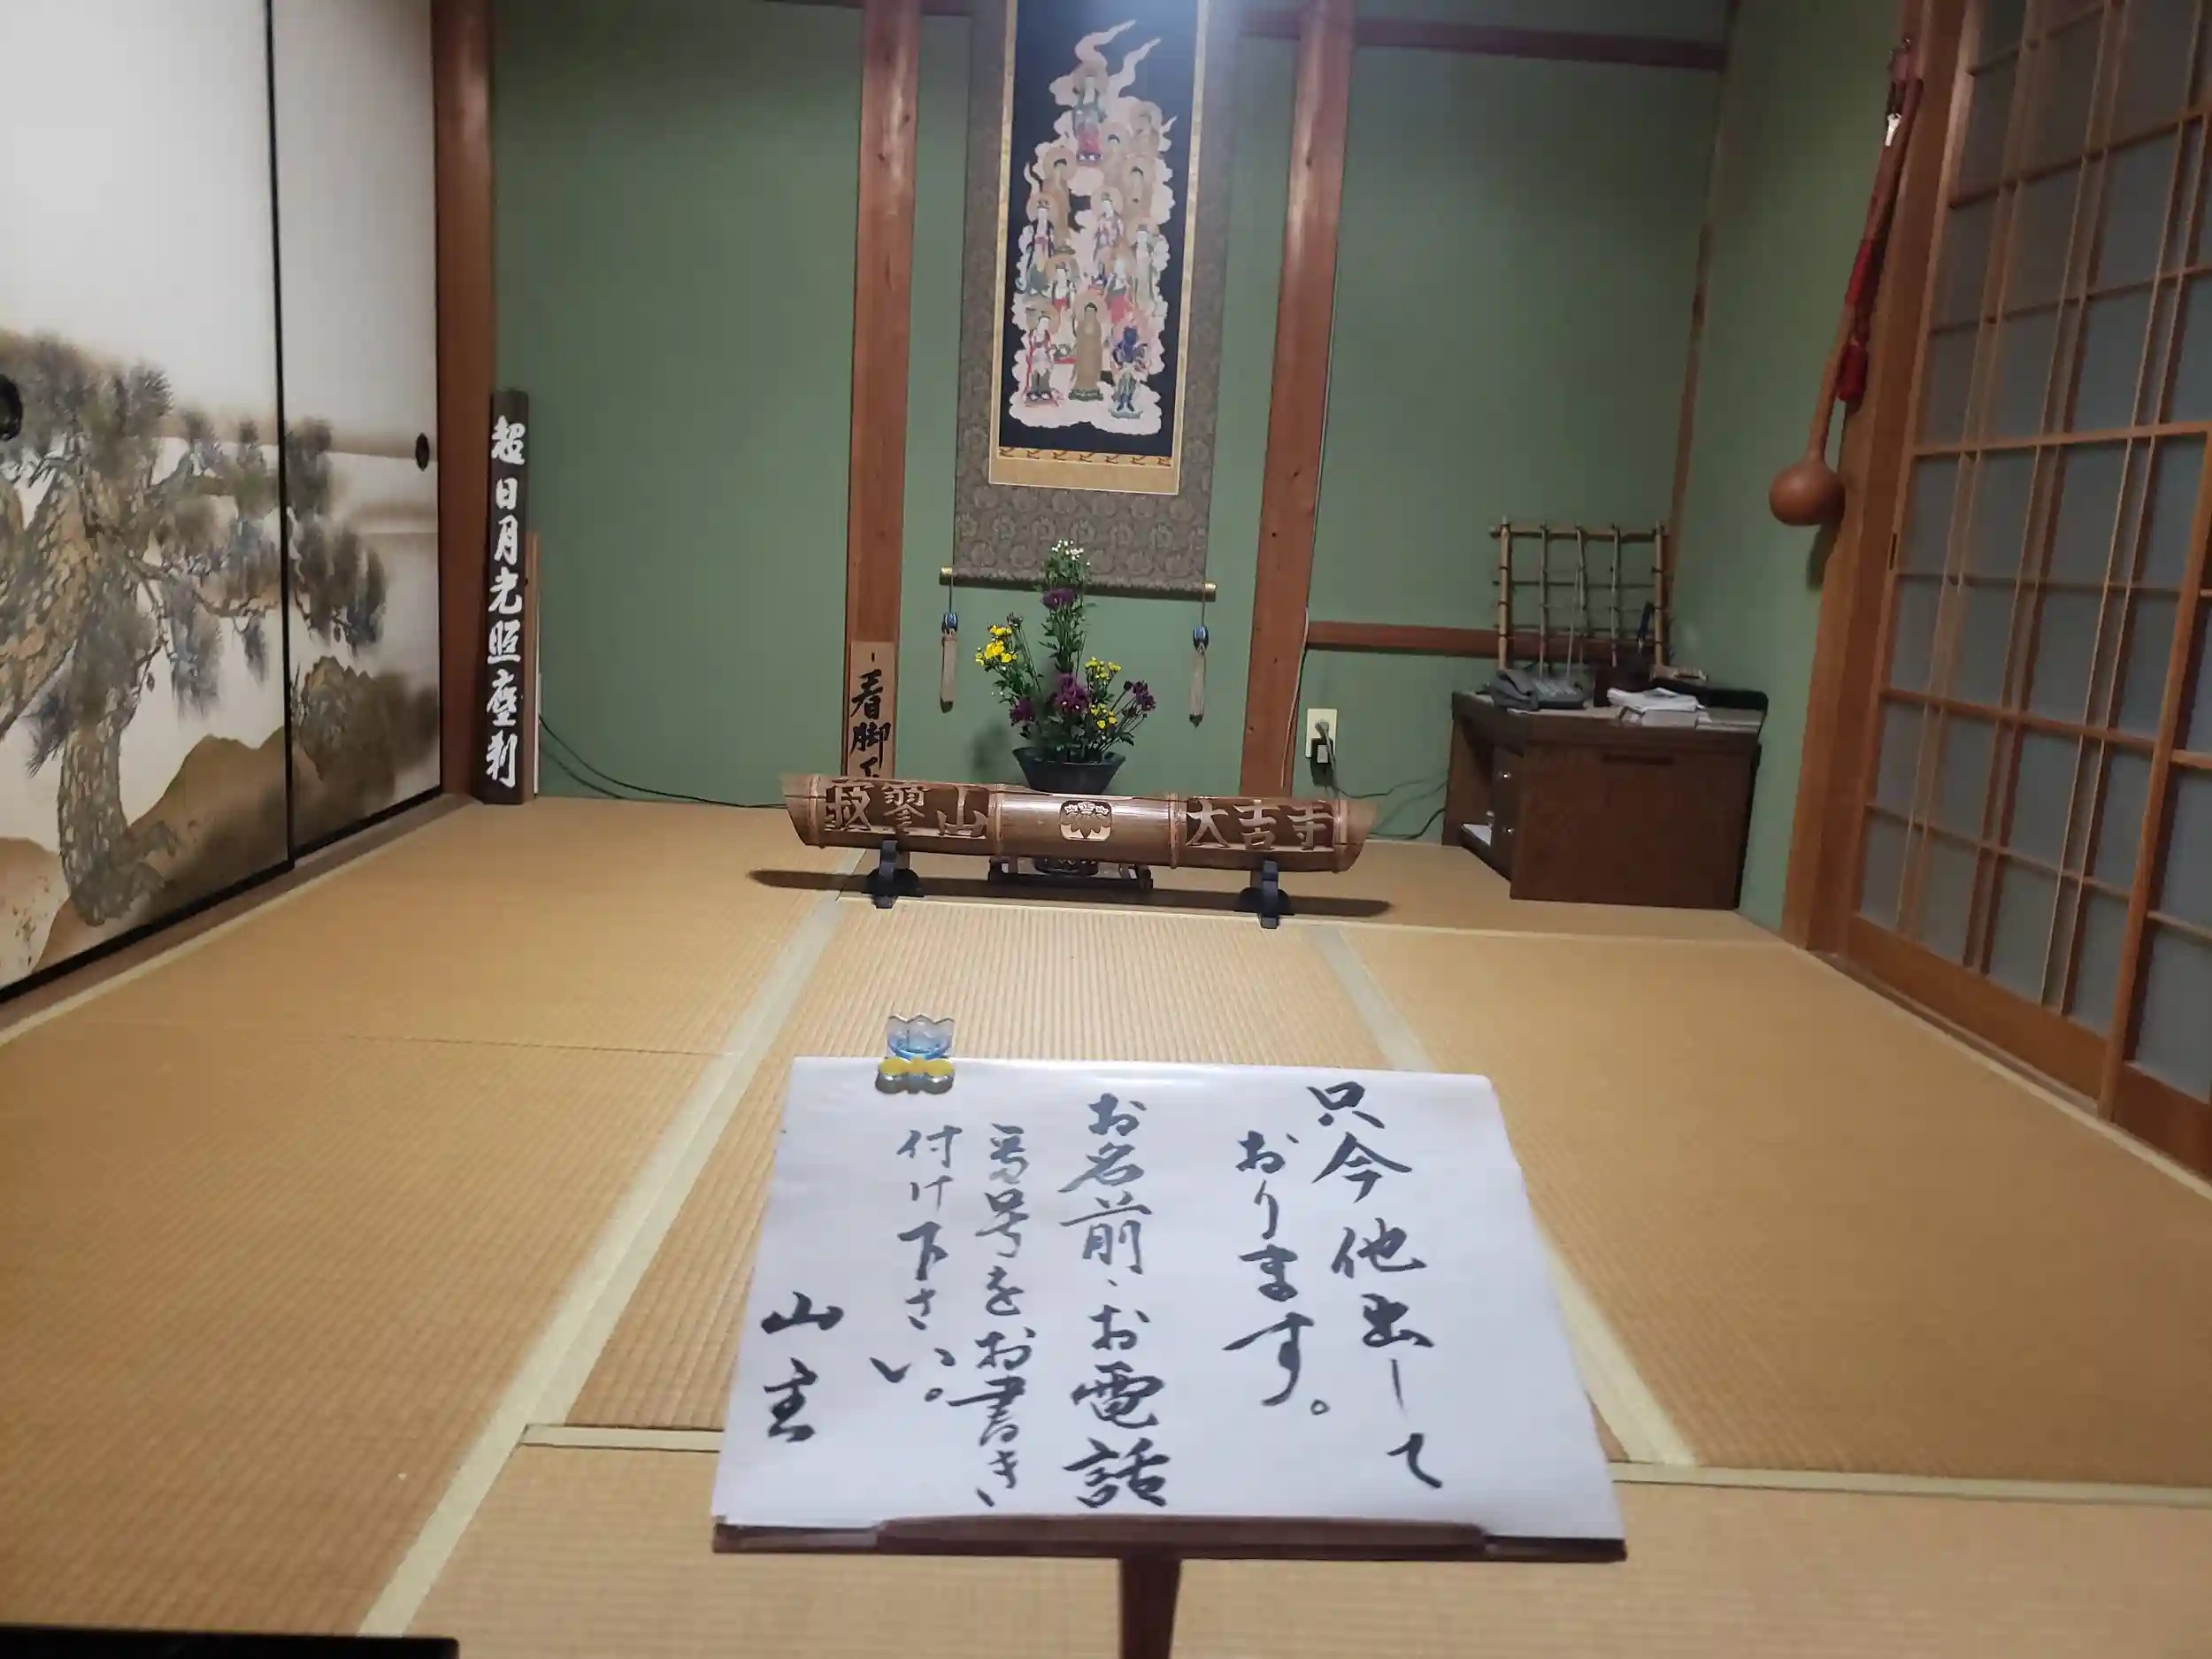 超日月光照塵刹
看脚下
大吉寺
只今他出して
おります。
お名前、お電話
番号をお書き
付け下さい。
山主